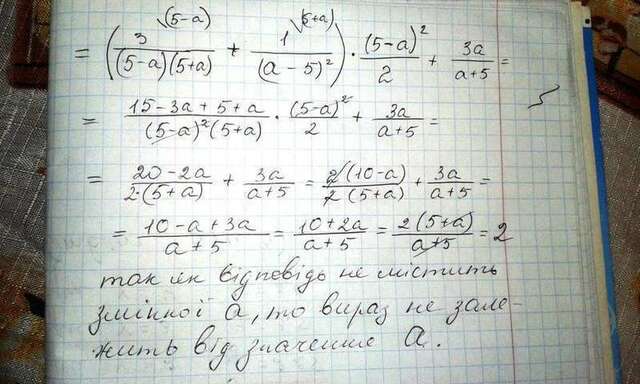 = (3\(5-a) / (5-a)(5+a) + 1\(5+a) / (a-5)²) · (5-a)² / 2 + 3a / a+5 =
= 15-3a+5+a / (5-a)²(5+a) · (5-a)² / 2 + 3a / a+5 =
= 20-2a / 2·(5+a) + 3a / a+5 = 2(10-a) / 2(5+a) + 3a / a+5 =
= 10-a+3a / a+5 = 10+2a / a+5 = 2(5+a) / a+5 = 2
так як відповідь не містить
змінної а, то вираз не зале-
жить від значення а.